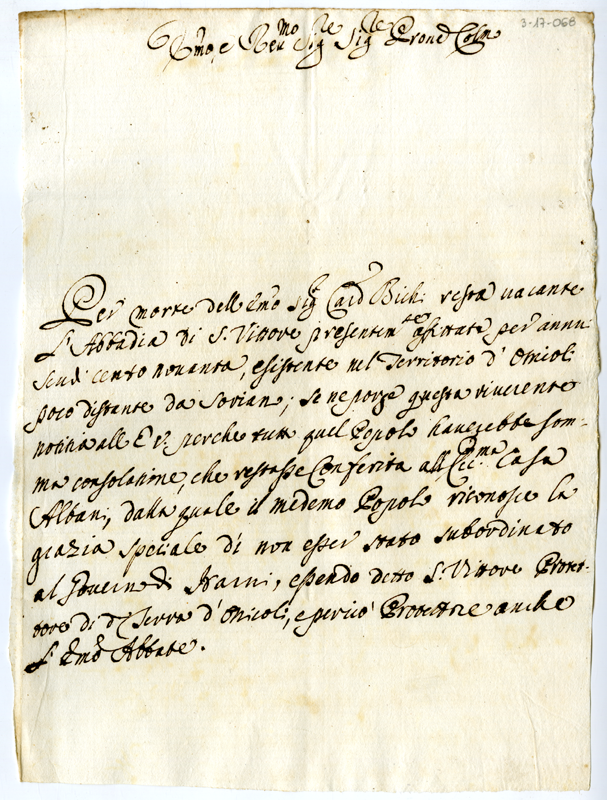 3-17-068
Emo e Revmo Sig.re Sig.re Prone Colmo
Per morte dell Emo Sig. Card Bichi resta vacante
l'Abbadia di S. Vittore presentemte affittata per annui
scudi cento novanta, esistente nel Territorio d'Otricoli
poco distante da Soriano; se ne porge questa riverente
notitia all E. V. perche tutto quel Popolo haverebbe som-
ma consolatione, che restasse Conferita all' Eccma Casa
Albani, dalla quale il medemo Popolo riconosce la
grazia speciale di non esser stato subordinato
al Governo di Narni, essendo detto S. Vittore Protet-
tore di da Terra d'Otricoli, e perciò Protettore anche
l'Emo Abbate.